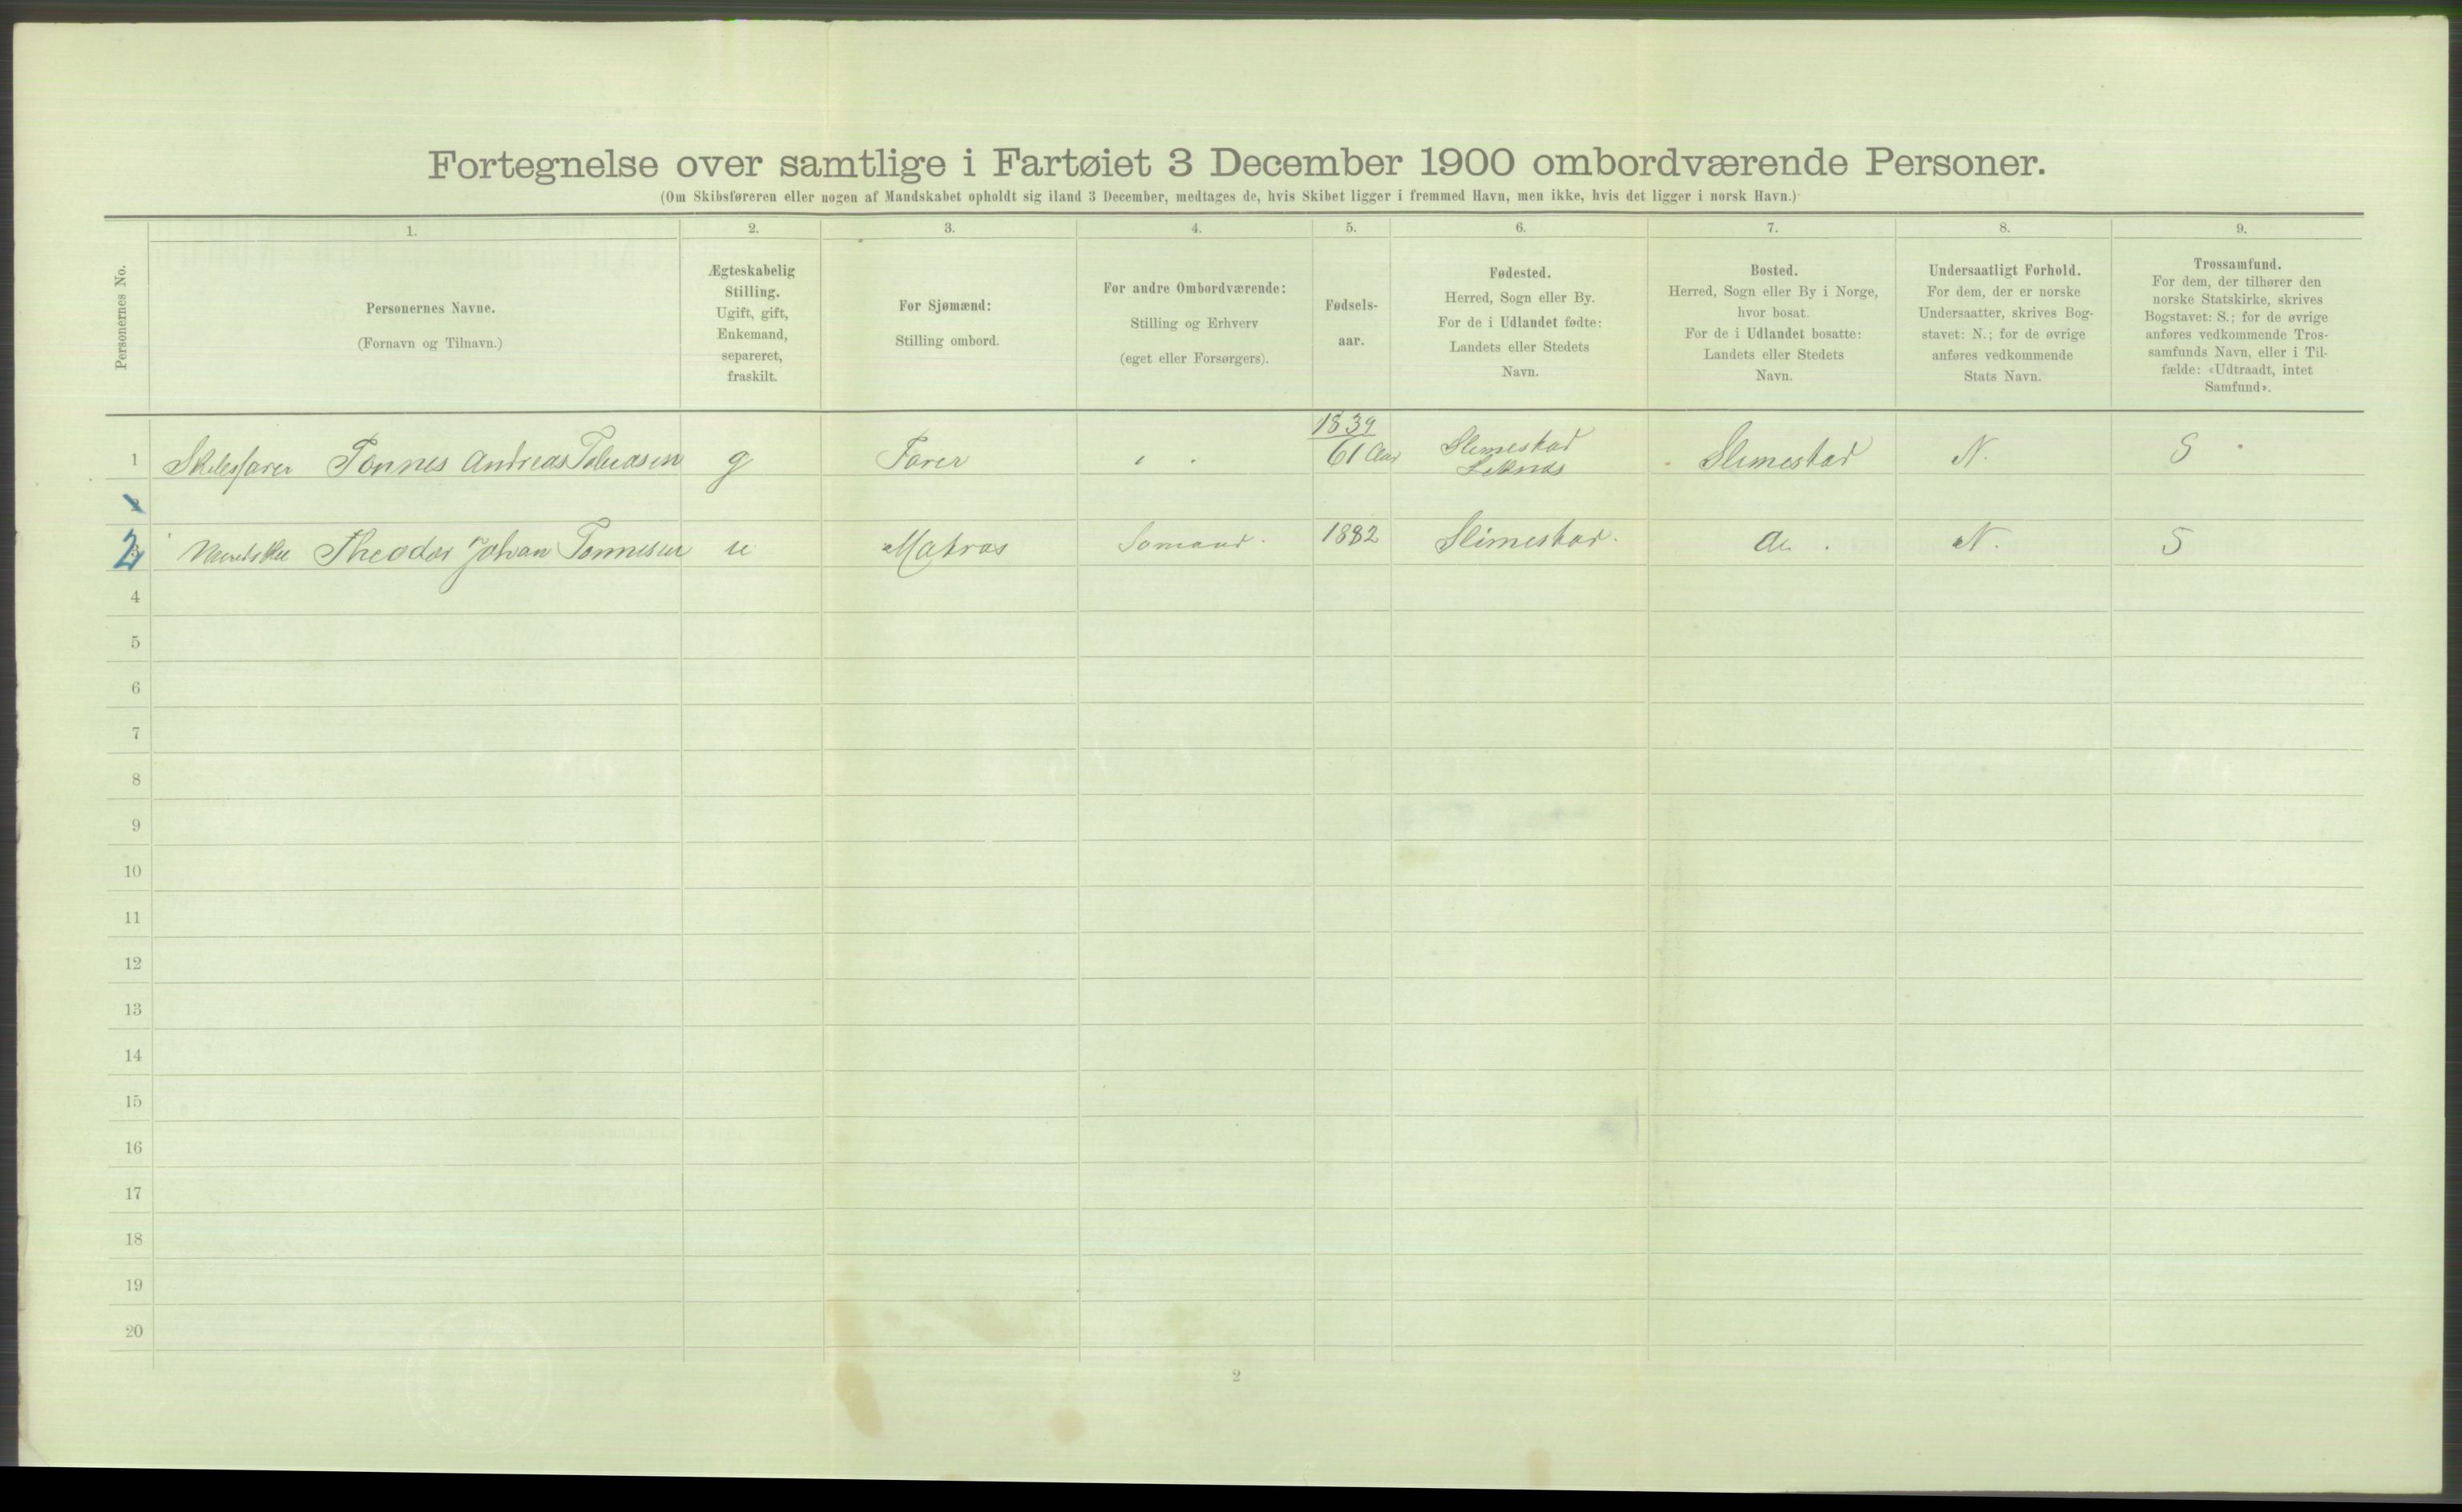 Fortegnelse over samtlige i Fartøiet 3 December 1900 ombordværende Personer.
(Om Skibsføreren eller nogen af Mandskabet opholdt sig iland 3 December, medtages de, hvis Skibet ligger i fremmed Havn, men ikke, hvis det ligger i norsk Havn.)
Personernes No.
1.
Personernes Navne.
(Fornavn og Tilnavn.)
2.
Ægteskabelig
Stilling.
Ugift, gift,
Enkemand,
separeret,
fraskilt.
3.
For Sjømænd:
Stilling ombord.
4.
For andre Ombordværende:
Stilling og Erhverv
(eget eller Forsørgers).
5.
Fødsels-
aar.
6.
Fødested.
Herred, Sogn eller By.
For de i Udlandet fødte:
Landets eller Stedets
Navn.
7.
Bosted.
Herred, Sogn eller By i Norge,
hvor bosat.
For de i Udlandet bosatte:
Landets eller Stedets
Navn.
8.
Undersaatligt Forhold.
For dem, der er norske
Undersaatter, skrives Bog-
stavet: N.; for de øvrige
anføres vedkommende
Stats Navn.
9.
Trossamfund.
For dem, der tilhører den
norske Statskirke, skrives
Bogstavet: S.; for de øvrige
anføres vedkommende Tros-
samfunds Navn, eller i Til-
fælde: «Udtraadt, intet
Samfund».
1839
1 Tonnes Andreas Tobiasen g Fører 61 Aar Slimestad Slimestad N. S
2 Theodor Johan Tonnesen u Matros Sømand. 1882 Slimestad. N. S
4
5
6
7
8
9
10
11
12
13
14
15
16
17
18
19
20
2